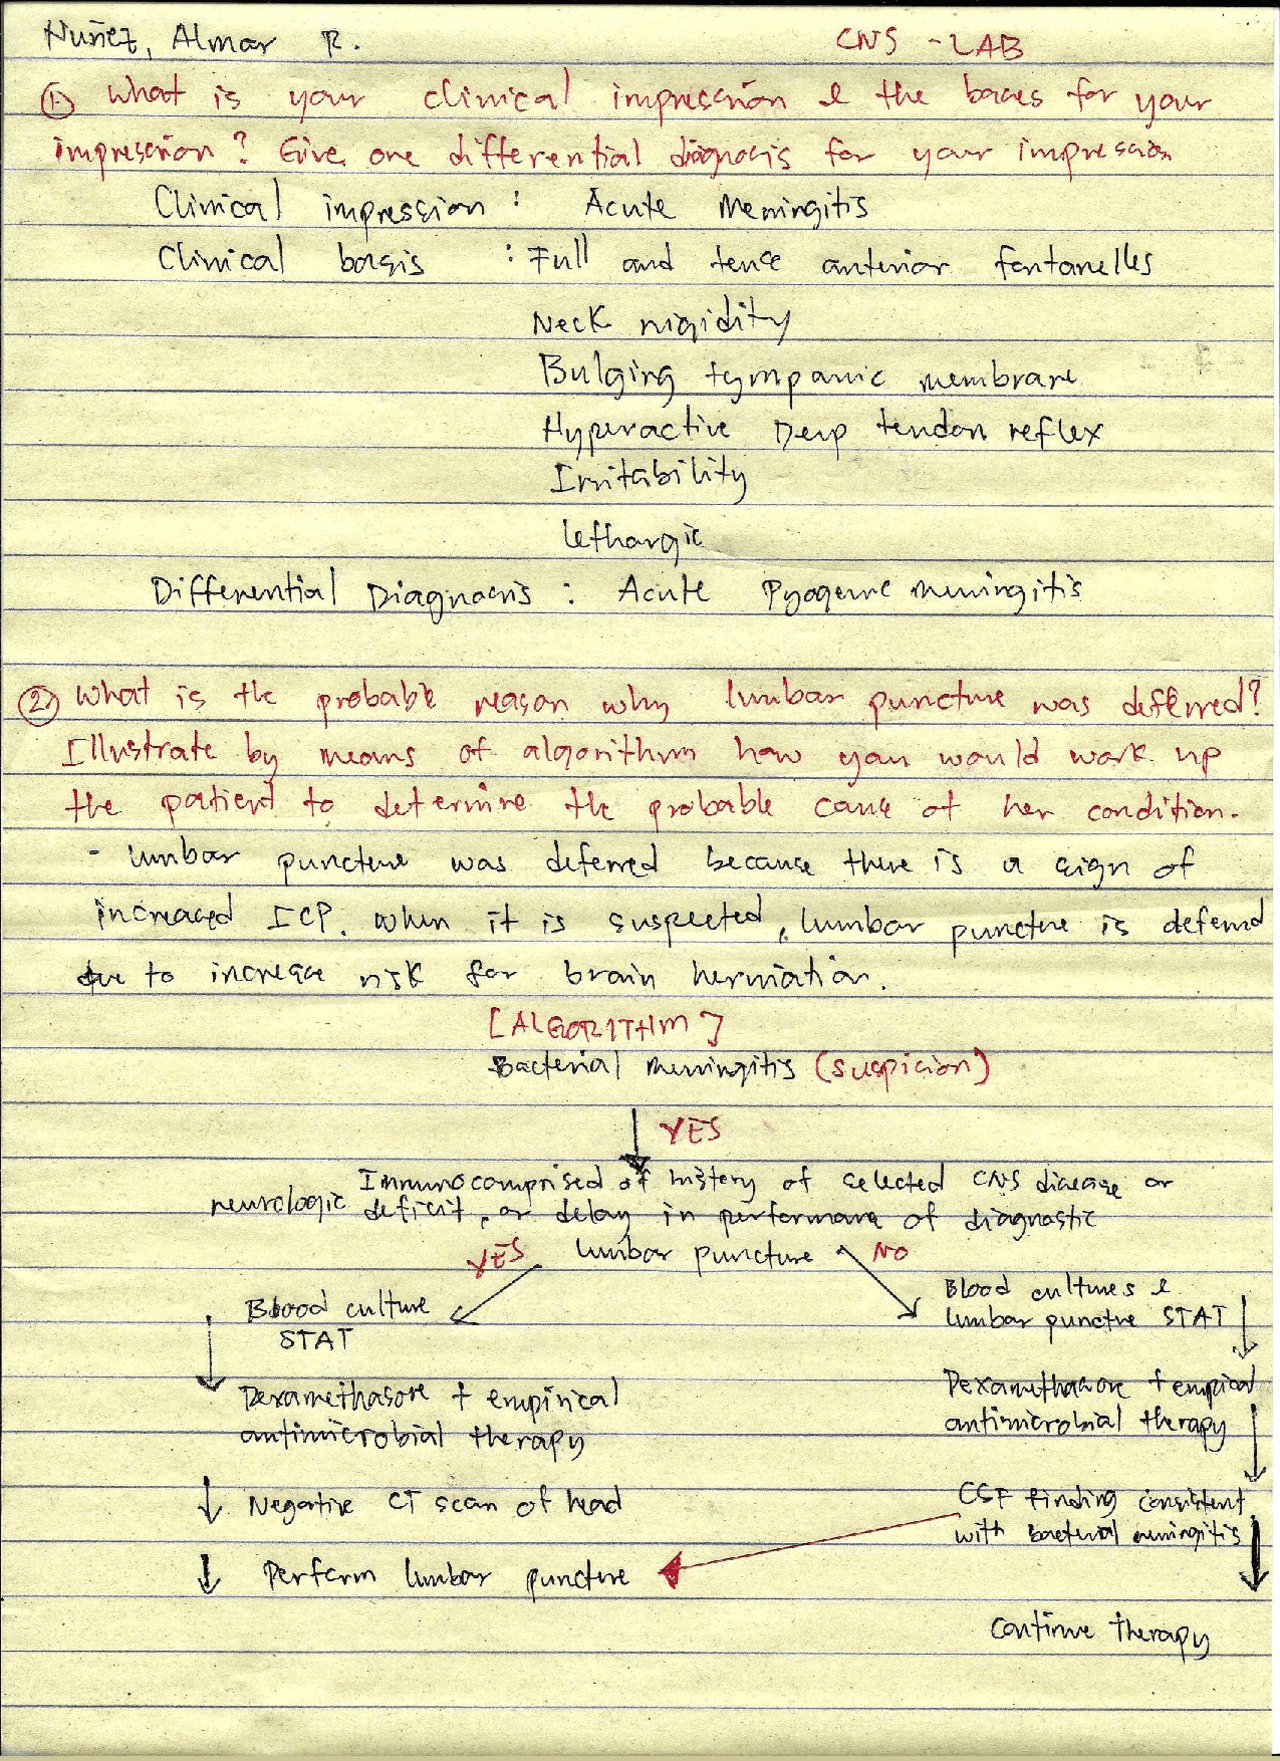 Nuñez, Almar R.
CNS - LAB
① What is your clinical impression & the bases for your
impression? Give one differential diagnosis for your impression
Clinical impression : Acute Meningitis
Clinical basis : Full and tense anterior fontanelles
Neck rigidity
Bulging tympanic membrane
Hyperactive Deep tendon reflex
Irritability
lethargic
Differential Diagnosis : Acute Pyogenic meningitis
② What is the probable reason why lumbar puncture was deferred?
Illustrate by means of algorithm how you would work up
the patient to determine the probable cause of her condition.
- lumbar puncture was deferred because there is a sign of
increased ICP. when it is suspected, lumbar puncture is deferred
due to increase risk for brain herniation.
[ALGORITHM]
Bacterial meningitis (suspicion)
YES
Immunocomprised of history of selected CNS disease or
neurologic deficit, or delay in performance of diagnostic
YES lumbar puncture NO
Blood culture
STAT
Blood cultures &
lumbar puncture STAT
Dexamethasone + empirical
antimicrobial therapy
Dexamethasone + empirical
antimicrobial therapy
Negative CT scan of head
CSF finding consistent
with bacterial meningitis
Perform lumbar puncture
Continue therapy